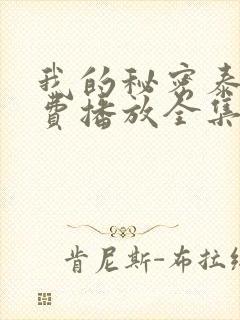 我的秘密泰
费播放全集
肯尼斯-布拉纳